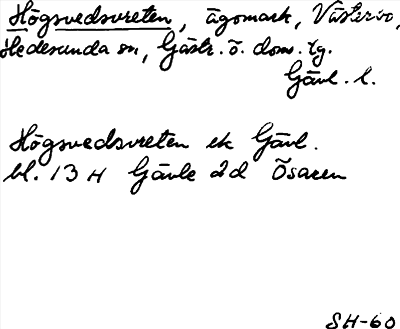 Högsvedsvreten, ägomark, Västerbo,
Hedesunda sn, Gästr. ö. doms. tg.
Gävl. l.
Högsvedsvreten ek Gävl.
bl. 13 H Gävle 2d Ösaren
SH-60